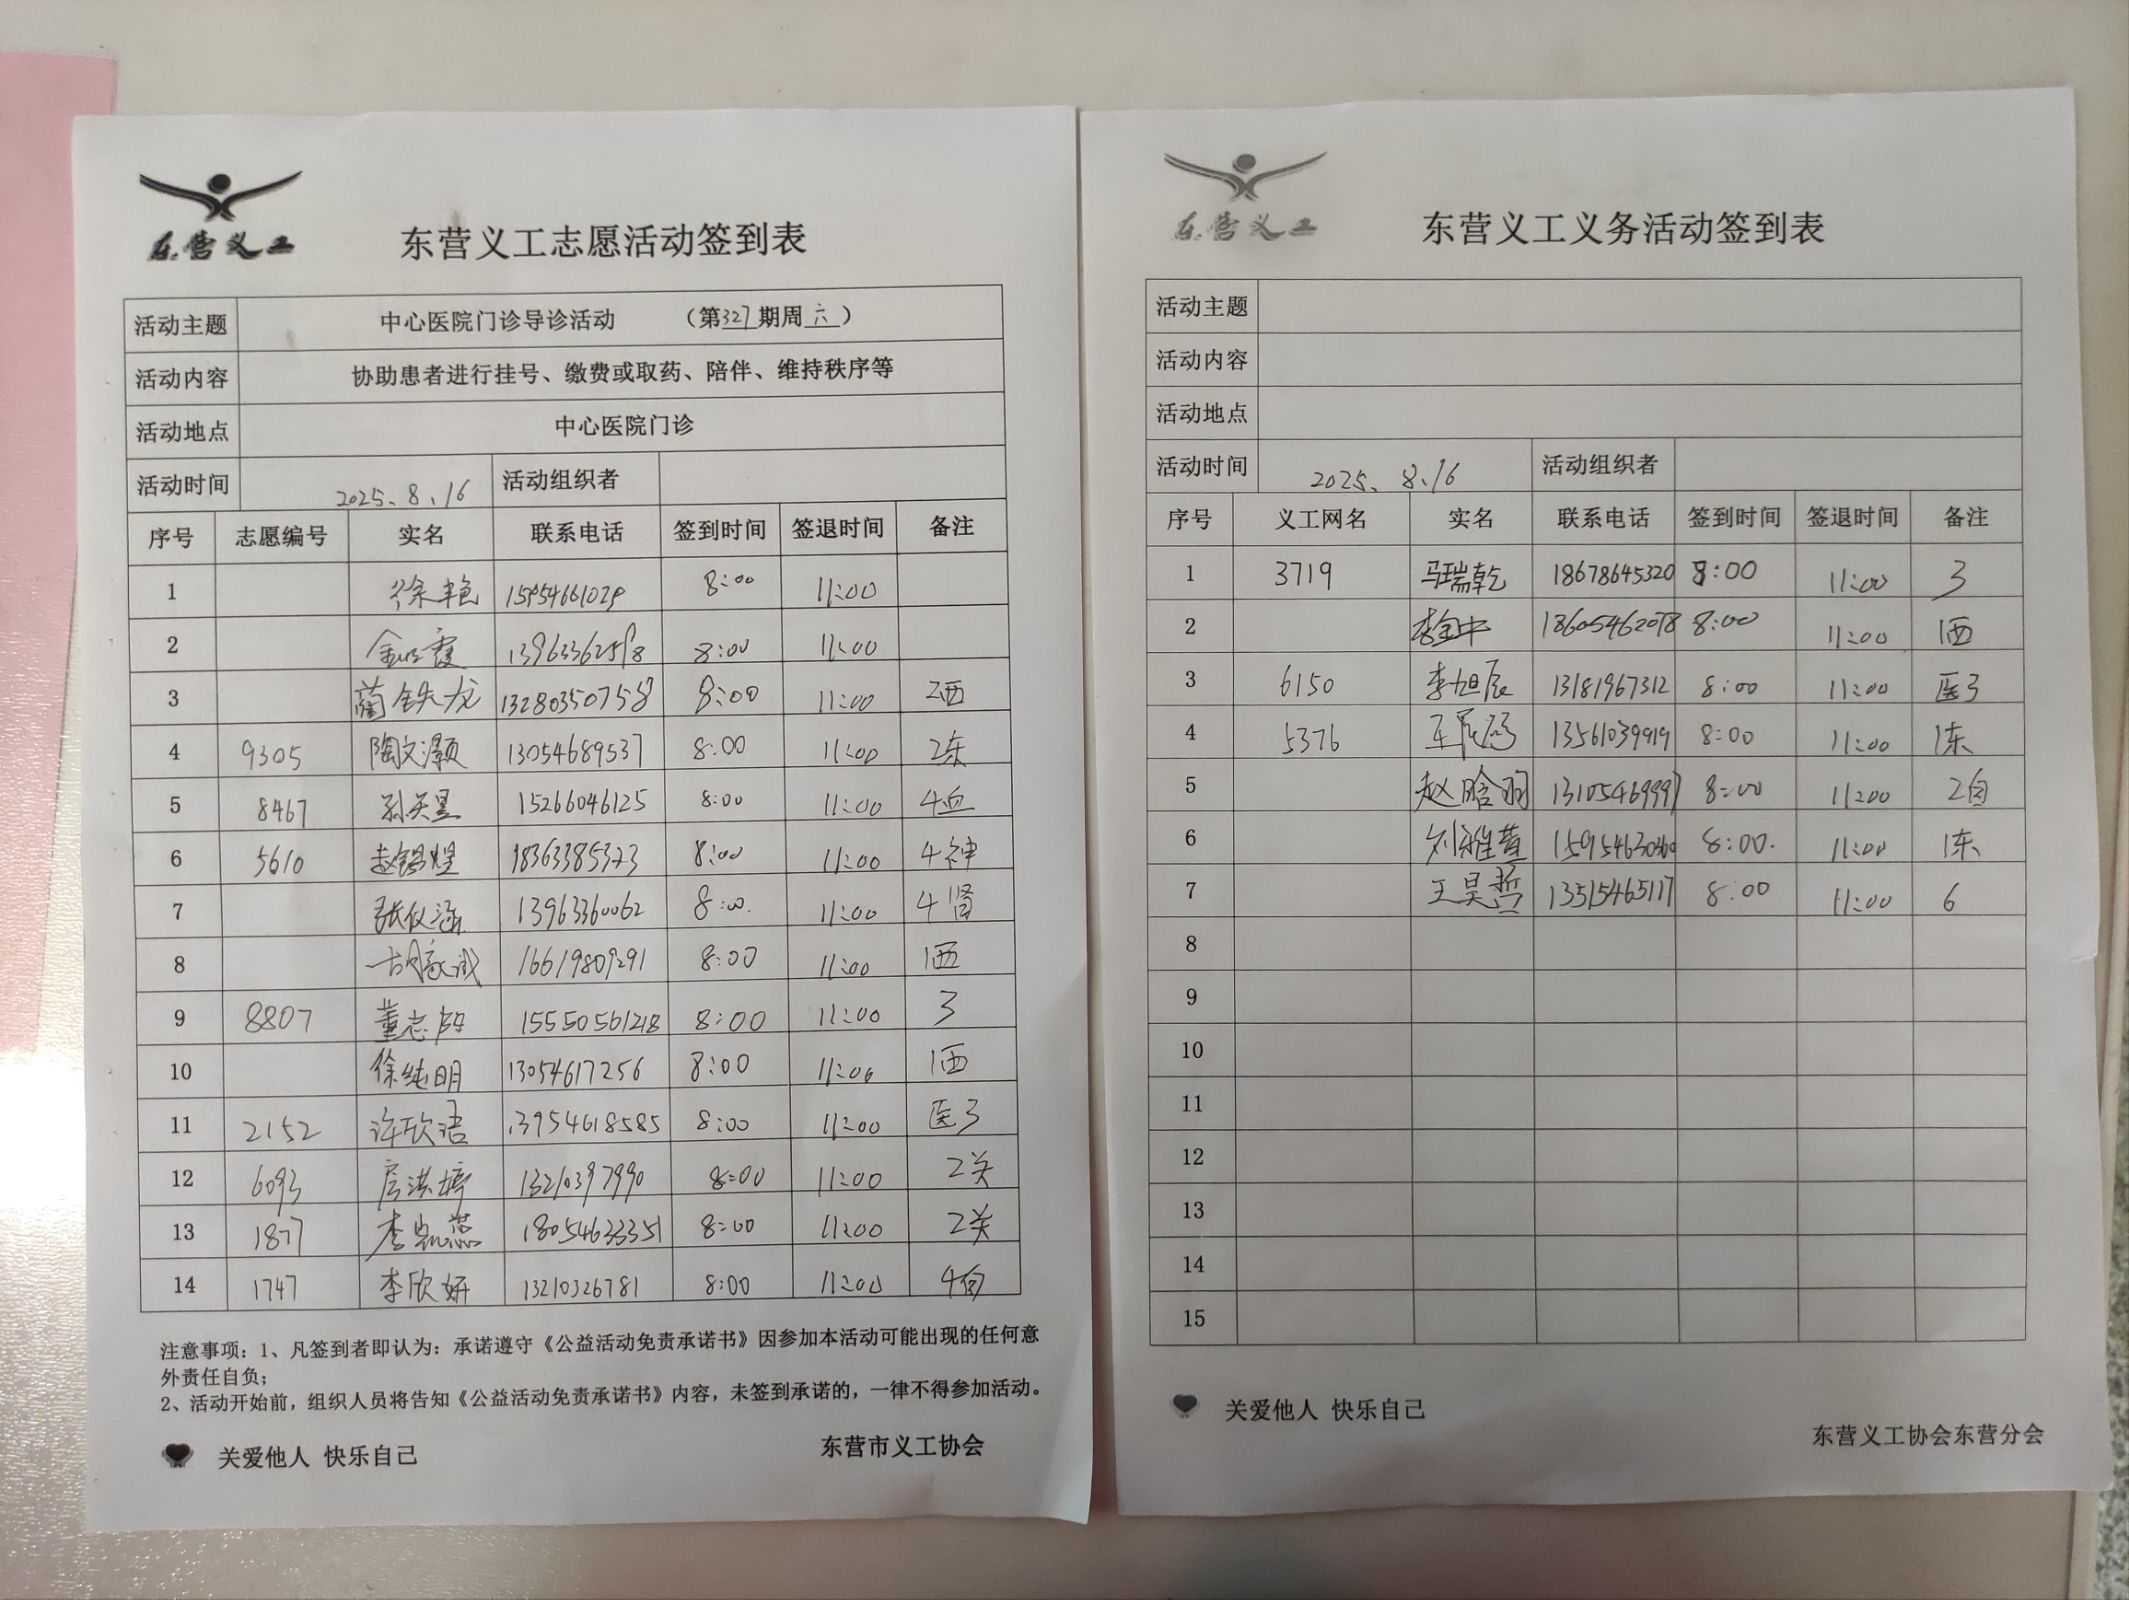 东营义工
东营义工志愿活动签到表
活动主题 中心医院门诊导诊活动 （第327期周六）
活动内容 协助患者进行挂号、缴费或取药、陪伴、维持秩序等
活动地点 中心医院门诊
活动时间 2025.8.16 活动组织者
序号 志愿编号 实名 联系电话 签到时间 签退时间 备注
1 徐艳 8:00 11:00
2 8:00 11:00
3 蔺铁龙 13280350758 8:00 11:00 2西
4 9305 陶文灏 13054689537 8:00 11:00 2东
5 8467 孙天昱 15266046125 8:00 11:00 4血
6 5610 赵锦煜 18363385323 8:00 11:00 4神
7 张仪涵 13963360062 8:00 11:00 4肾
8 胡家诚 16619809291 8:00 11:00 1西
9 8807 董志 15550561218 8:00 11:00 3
10 徐纯明 13054617256 8:00 11:00 1西
11 2152 许欣语 13954618585 8:00 11:00 医3
12 6093 房洪婷 13210397990 8:00 11:00 2关
13 1877 李凯蕊 18054633351 8:00 11:00 2关
14 1747 李欣妍 13210326781 8:00 11:00 4
注意事项：1、凡签到者即认为：承诺遵守《公益活动免责承诺书》因参加本活动可能出现的任何意
外责任自负；
2、活动开始前，组织人员将告知《公益活动免责承诺书》内容，未签到承诺的，一律不得参加活动。
关爱他人 快乐自己
东营市义工协会
东营义工
东营义工义务活动签到表
活动主题
活动内容
活动地点
活动时间 2025.8.16 活动组织者
序号 义工网名 实名 联系电话 签到时间 签退时间 备注
1 3719 马瑞乾 18678645320 8:00 11:00 3
2 李金中 18605462078 8:00 11:00 1西
3 6150 李旭辰 13181967312 8:00 11:00 医3
4 5376 王 13561039919 8:00 11:00 1东
5 赵晗羽 13105469997 8:00 11:00 2自
6 刘雅萱 8:00 11:00 1东
7 王昊哲 13515465117 8:00 11:00 6
8
9
10
11
12
13
14
15
关爱他人 快乐自己
东营义工协会东营分会